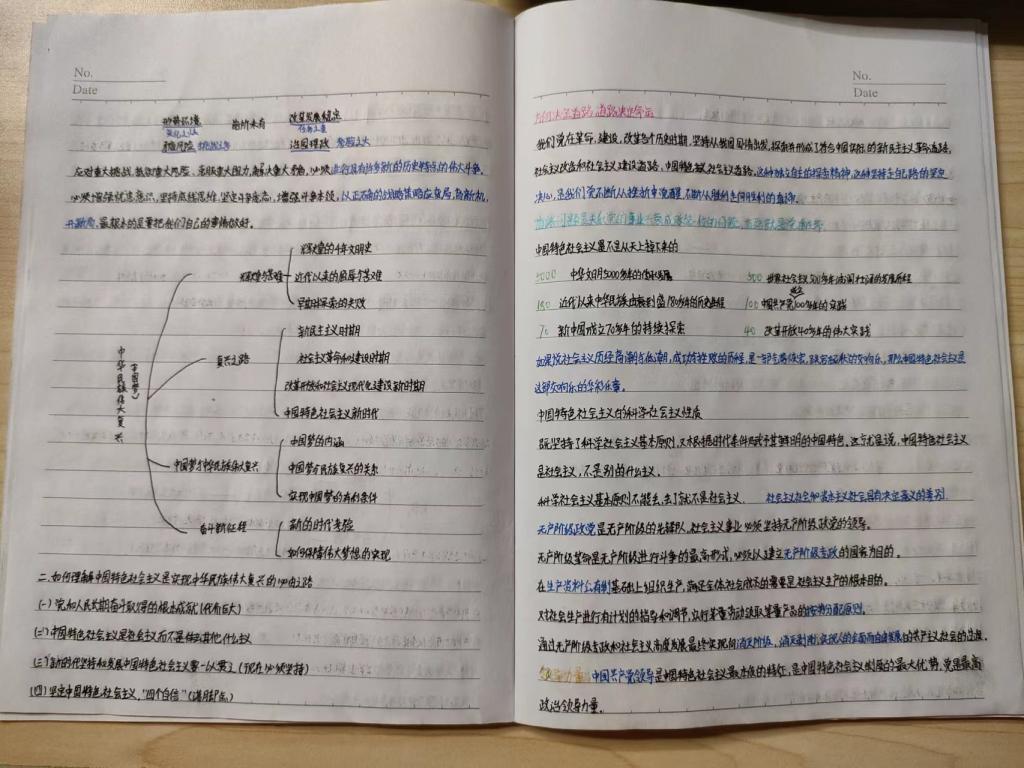 No.
Date
形势环境 前所未有 改革发展稳定
变化之快 任务之重
风险挑战之多 治国理政 考验之大
应对重大挑战,抵御重大风险,克服重大阻力,解决重大矛盾,必须进行具有许多新的历史特点的伟大斗争。
必须增强忧患意识,坚持底线思维,坚定斗争意志,增强斗争本领,以正确的战略策略应变局,育新机,
开新局,最根本的是要把我们自己的事情做好。
中华民族伟大复兴
(中国梦)
辉煌与苦难
辉煌的千年文明史
近代以来的屈辱与苦难
早期探索的失败
复兴之路
新民主主义时期
社会主义革命和建设时期
改革开放和社会主义现代化建设新时期
中国特色社会主义新时代
中国梦与中华民族伟大复兴
中国梦的内涵
中国梦与民族复兴的关系
实现中国梦的有利条件
奋斗新征程
新的时代考验
如何保障伟大梦想的实现
二、如何理解中国特色社会主义是实现中华民族伟大复兴的必由之路
(一)党和人民长期奋斗取得的根本成就(代有四大)
(二)中国特色社会主义是社会主义而不是什么其他什么主义
(三)新时代坚持和发展中国特色社会主义要一以贯之(现在必须坚持)
(四)坚定中国特色社会主义,"四个自信"
No.
Date
方向决定道路,道路决定命运
我们党在革命,建设,改革各个历史时期,坚持从我国国情出发,探索并形成了符合中国实际的新民主主义革命道路,
社会主义改造和社会主义建设道路,中国特色社会主义道路,这种独立自主的探索精神,这种坚持走自己路的坚定
决心,是我们党不断从挫折中觉醒,不断从胜利走向胜利的真谛。
中国特色社会主义不是从天上掉下来的
5000 中华文明5000多年的传承发展 500 世界社会主义500多年波澜壮阔的发展历程
180 近代以来中华民族由衰到盛180多年的历史进程 100 中国共产党100多年的实践
70 新中国成立70多年的持续探索 40 改革开放40多年的伟大实践
如果说社会主义历经高潮与低潮,成功与挫败的历程,是一部气势恢宏,跌宕起伏的交响乐,那么中国特色社会主义是
这部交响乐的华彩乐章。
中国特色社会主义的科学社会主义性质
既坚持了科学社会主义基本原则,又根据时代条件赋予其鲜明的中国特色。这就是说,中国特色社会主义
是社会主义,不是别的什么主义。
科学社会主义基本原则不能丢,丢了就不是社会主义。 社会主义社会和资本主义社会具有决定意义的差别
无产阶级政党是无产阶级的先锋队,社会主义事业必须坚持无产阶级政党的领导。
无产阶级革命是无产阶级进行斗争的最高形式,必须以建立无产阶级专政的国家为目的。
在生产资料公有制基础上组织生产,满足全体社会成员的需要是社会主义生产的根本目的。
对社会生产进行有计划的指导和调节,实行等量劳动领取等量产品的按劳分配原则。
通过无产阶级专政和社会主义高度发展最终实现向消灭阶级,消灭剥削,实现人的全面而自由发展的共产主义社会的过渡。
领导力量:中国共产党领导是中国特色社会主义最本质的特征,是中国特色社会主义制度的最大优势,党是最高
政治领导力量。